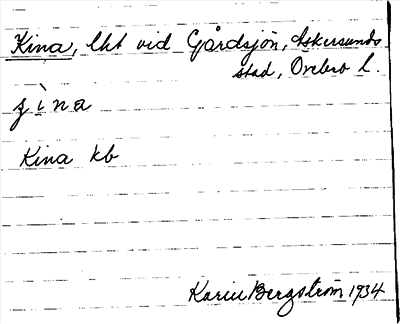 Kina, lht vid Gårdsjön, Askersunds
stad, Örebro l.
ʒìna
Kina kb
Karin Bergström 1934